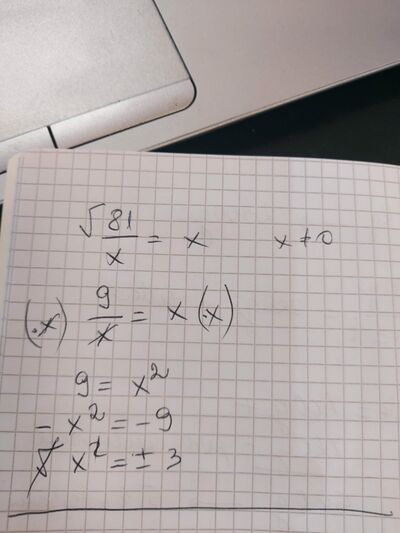 √81/x = x    x ≠ 0
(·x) 9/x = x (·x)
9 = x²
- x² = -9
x² = ± 3